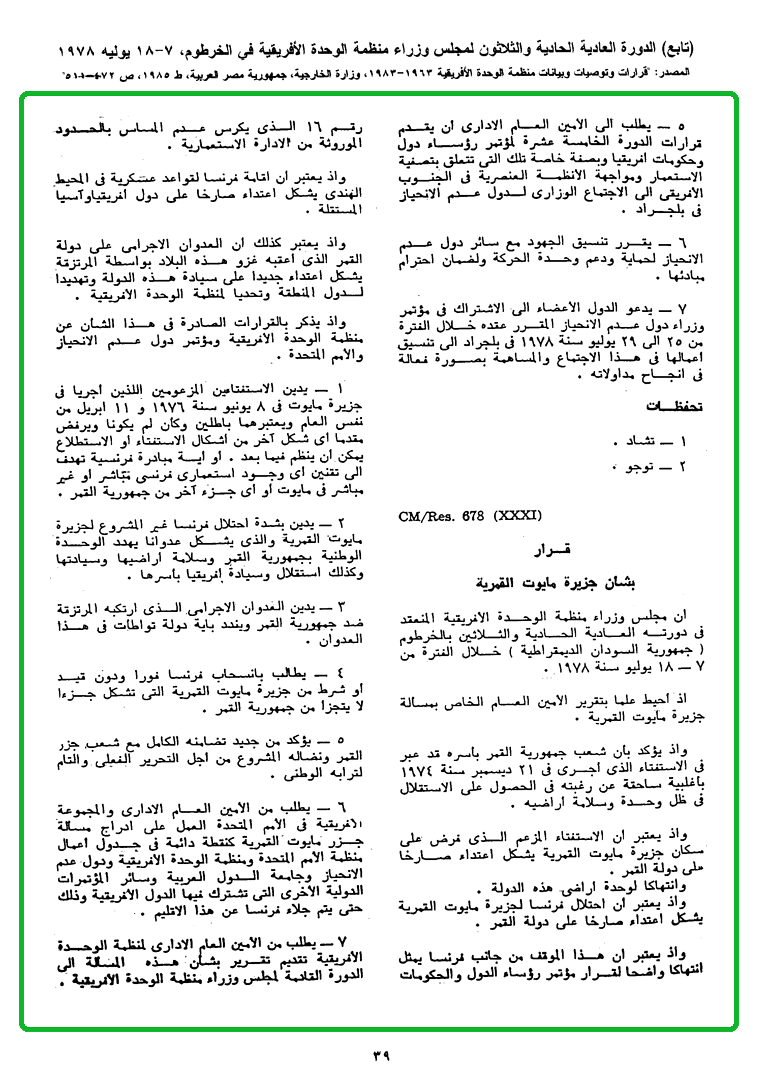 (تابع) الدورة العادية الحادية والثلاثون لمجلس وزراء منظمة الوحدة الأفريقية في الخرطوم، ٧-١٨ يوليه ١٩٧٨
المصدر: "قرارات وتوصيات وبيانات منظمة الوحدة الأفريقية ١٩٦٣-١٩٨٣، وزارة الخارجية، جمهورية مصر العربية، ط ١٩٨٥، ص
٥ — يطلب الى الامين العـام الادارى أن يقـدم
قرارات الدورة الخامسة عشرة لمؤتمر رؤسـاء دول
وحكومات افريقيا وبصفة خاصة تلك التى تتعلق بتصفية
الاستعمار ومواجهة الأنظمـة العنصرية فى الجنـوب
الأفريقى الى الاجتماع الوزارى لـدول عـدم الانحياز
فى بلجراد .
٦ — يقـرر تنسيق الجهود مع سائر دول عـدم
الانحياز لحماية ودعم وحـدة الحركة ولضمان احترام
مبادئها .
٧ — يدعو الدول الأعضاء الى الاشتراك فى مؤتمر
وزراء دول عـدم الانحياز المقـرر عقده خـلال الفترة
من ٢٥ الى ٢٩ يوليو سنة ١٩٧٨ فى بلجراد الى تنسيق
أعمالها فى هـذا الاجتماع والمساهمة بصـورة فعالة
فى انجـاح مداولاته .
تحفظـات
١ — تشـاد .
٢ — توجو .
CM/Res. 678 (XXXI)
قـرار
بشـأن جزيرة مايوت القمرية
ان مجلس وزراء منظمة الوحـدة الأفريقية المنعقد
فى دورتـه العـادية الحـادية والثـلاثين بالخرطوم
( جمهورية السودان الديمقراطية ) خـلال الفترة من
٧ — ١٨ يوليو سنة ١٩٧٨ .
اذ أحيط علما بتقرير الأمين العـام الخاص بمسالة
جزيرة مايوت القمرية .
واذ يؤكد بأن شعب جمهورية القمر بأسره قد عبر
فى الاستفتاء الذى أجـرى فى ٢١ ديسمبر سنة ١٩٧٤
بأغلبية ساحقة عن رغبته فى الحصول على الاستقلال
فى ظل وحـدة وسلامة أراضيه .
واذ يعتبر أن الاستفتاء المزعم الـذى فرض على
سكان جزيرة مايوت القمرية يشكل اعتداء صـارخا
على دولة القمر .
وانتهاكا لوحدة أراضى هذه الدولة .
واذ يعتبر أن احتلال فرنسا لجزيرة مايوت القمرية
يشكل اعتداء صارخا على دولة القمر .
واذ يعتبر ان هـذا الموقف من جانب فرنسا يمثل
انتهاكا واضحا لقرار مؤتمر رؤساء الدول والحكومات
رقـم ١٦ الـذى يكرس عـدم المسـاس بالحـدود
الموروثة من الادارة الاستعمارية .
واذ يعتبر ان اقامة فرنسا لقواعد عسكرية فى المحيط
الهندى يشكل اعتداء صارخا على دول أفريقيا وآسيا
المستقلة .
واذ يعتبر كذلك ان العدوان الاجرامى على دولة
القمر الذى أعقبه غزو هـذه البلاد بواسطة المرتزقة
يشكل اعتداء جديدا على سيادة هـذه الدولة وتهديدا
لـدول المنطقة وتحديا لمنظمة الوحدة الأفريقية .
واذ يذكر بالقرارات الصادرة فى هـذا الشأن عن
منظمة الوحدة الأفريقية ومؤتمر دول عـدم الانحياز
والأمم المتحدة .
١ — يدين الاستفتاءين المزعومين اللذين أجريا فى
جزيرة مايوت فى ٨ يونيو سنة ١٩٧٦ و ١١ ابريل من
نفس العام ويعتبرهما باطلين وكأن لم يكونا ويرفض
مقدما اى شكل آخر من أشكال الاستفتاء أو الاستطلاع
يمكن أن ينظم فيما بعد . أو أيـة مبادرة فرنسية تهدف
الى تقنين أى وجـود استعمارى فرنسى مباشر أو غير
مباشر فى مايوت أو أى جـزء آخر من جمهورية القمر .
٢ — يدين بشدة احتلال فرنسا غير المشروع لجزيرة
مايوت القمرية والذى يشـكل عدوانا يهدد الوحـدة
الوطنية بجمهورية القمر وسلامة أراضيها وسيادتها
وكذلك استقلال وسيادة إفريقيا بأسرها .
٣ — يدين العدوان الاجرامى الـذى ارتكبه المرتزقة
ضـد جمهورية القمر ويندد بأية دولة تواطأت فى هـذا
العدوان .
٤ — يطالب بانسحاب فرنسا فورا ودون قيـد
أو شرط من جزيرة مايوت القمرية التى تشكل جـزءا
لا يتجزأ من جمهورية القمر .
٥ — يؤكد من جديد تضامنه الكامل مع شعب جزر
القمر ونضاله المشروع من أجل التحرير الفعلى والتام
لترابه الوطنى .
٦ — يطلب من الأمين العـام الادارى والمجموعة
الأفريقية فى الأمم المتحدة العمل على ادراج مسالة
جـزر مايوت القمرية كنقطة دائمة فى جـدول أعمال
منظمة الأمم المتحدة ومنظمة الوحدة الأفريقية ودول عدم
الانحياز وجامعة الـدول العربية وسائر المؤتمرات
الدولية الأخرى التى تشترك فيها الدول الأفريقية وذلك
حتى يتم جلاء فرنسا عن هذا الاقليم .
٧ — يطلب من الأمين العام الادارى لمنظمة الوحـدة
الأفريقية تقديم تقرير بشأن هـذه المسالة الى
الدورة القادمة لمجلس وزراء منظمة الوحدة الأفريقية .
٣٩